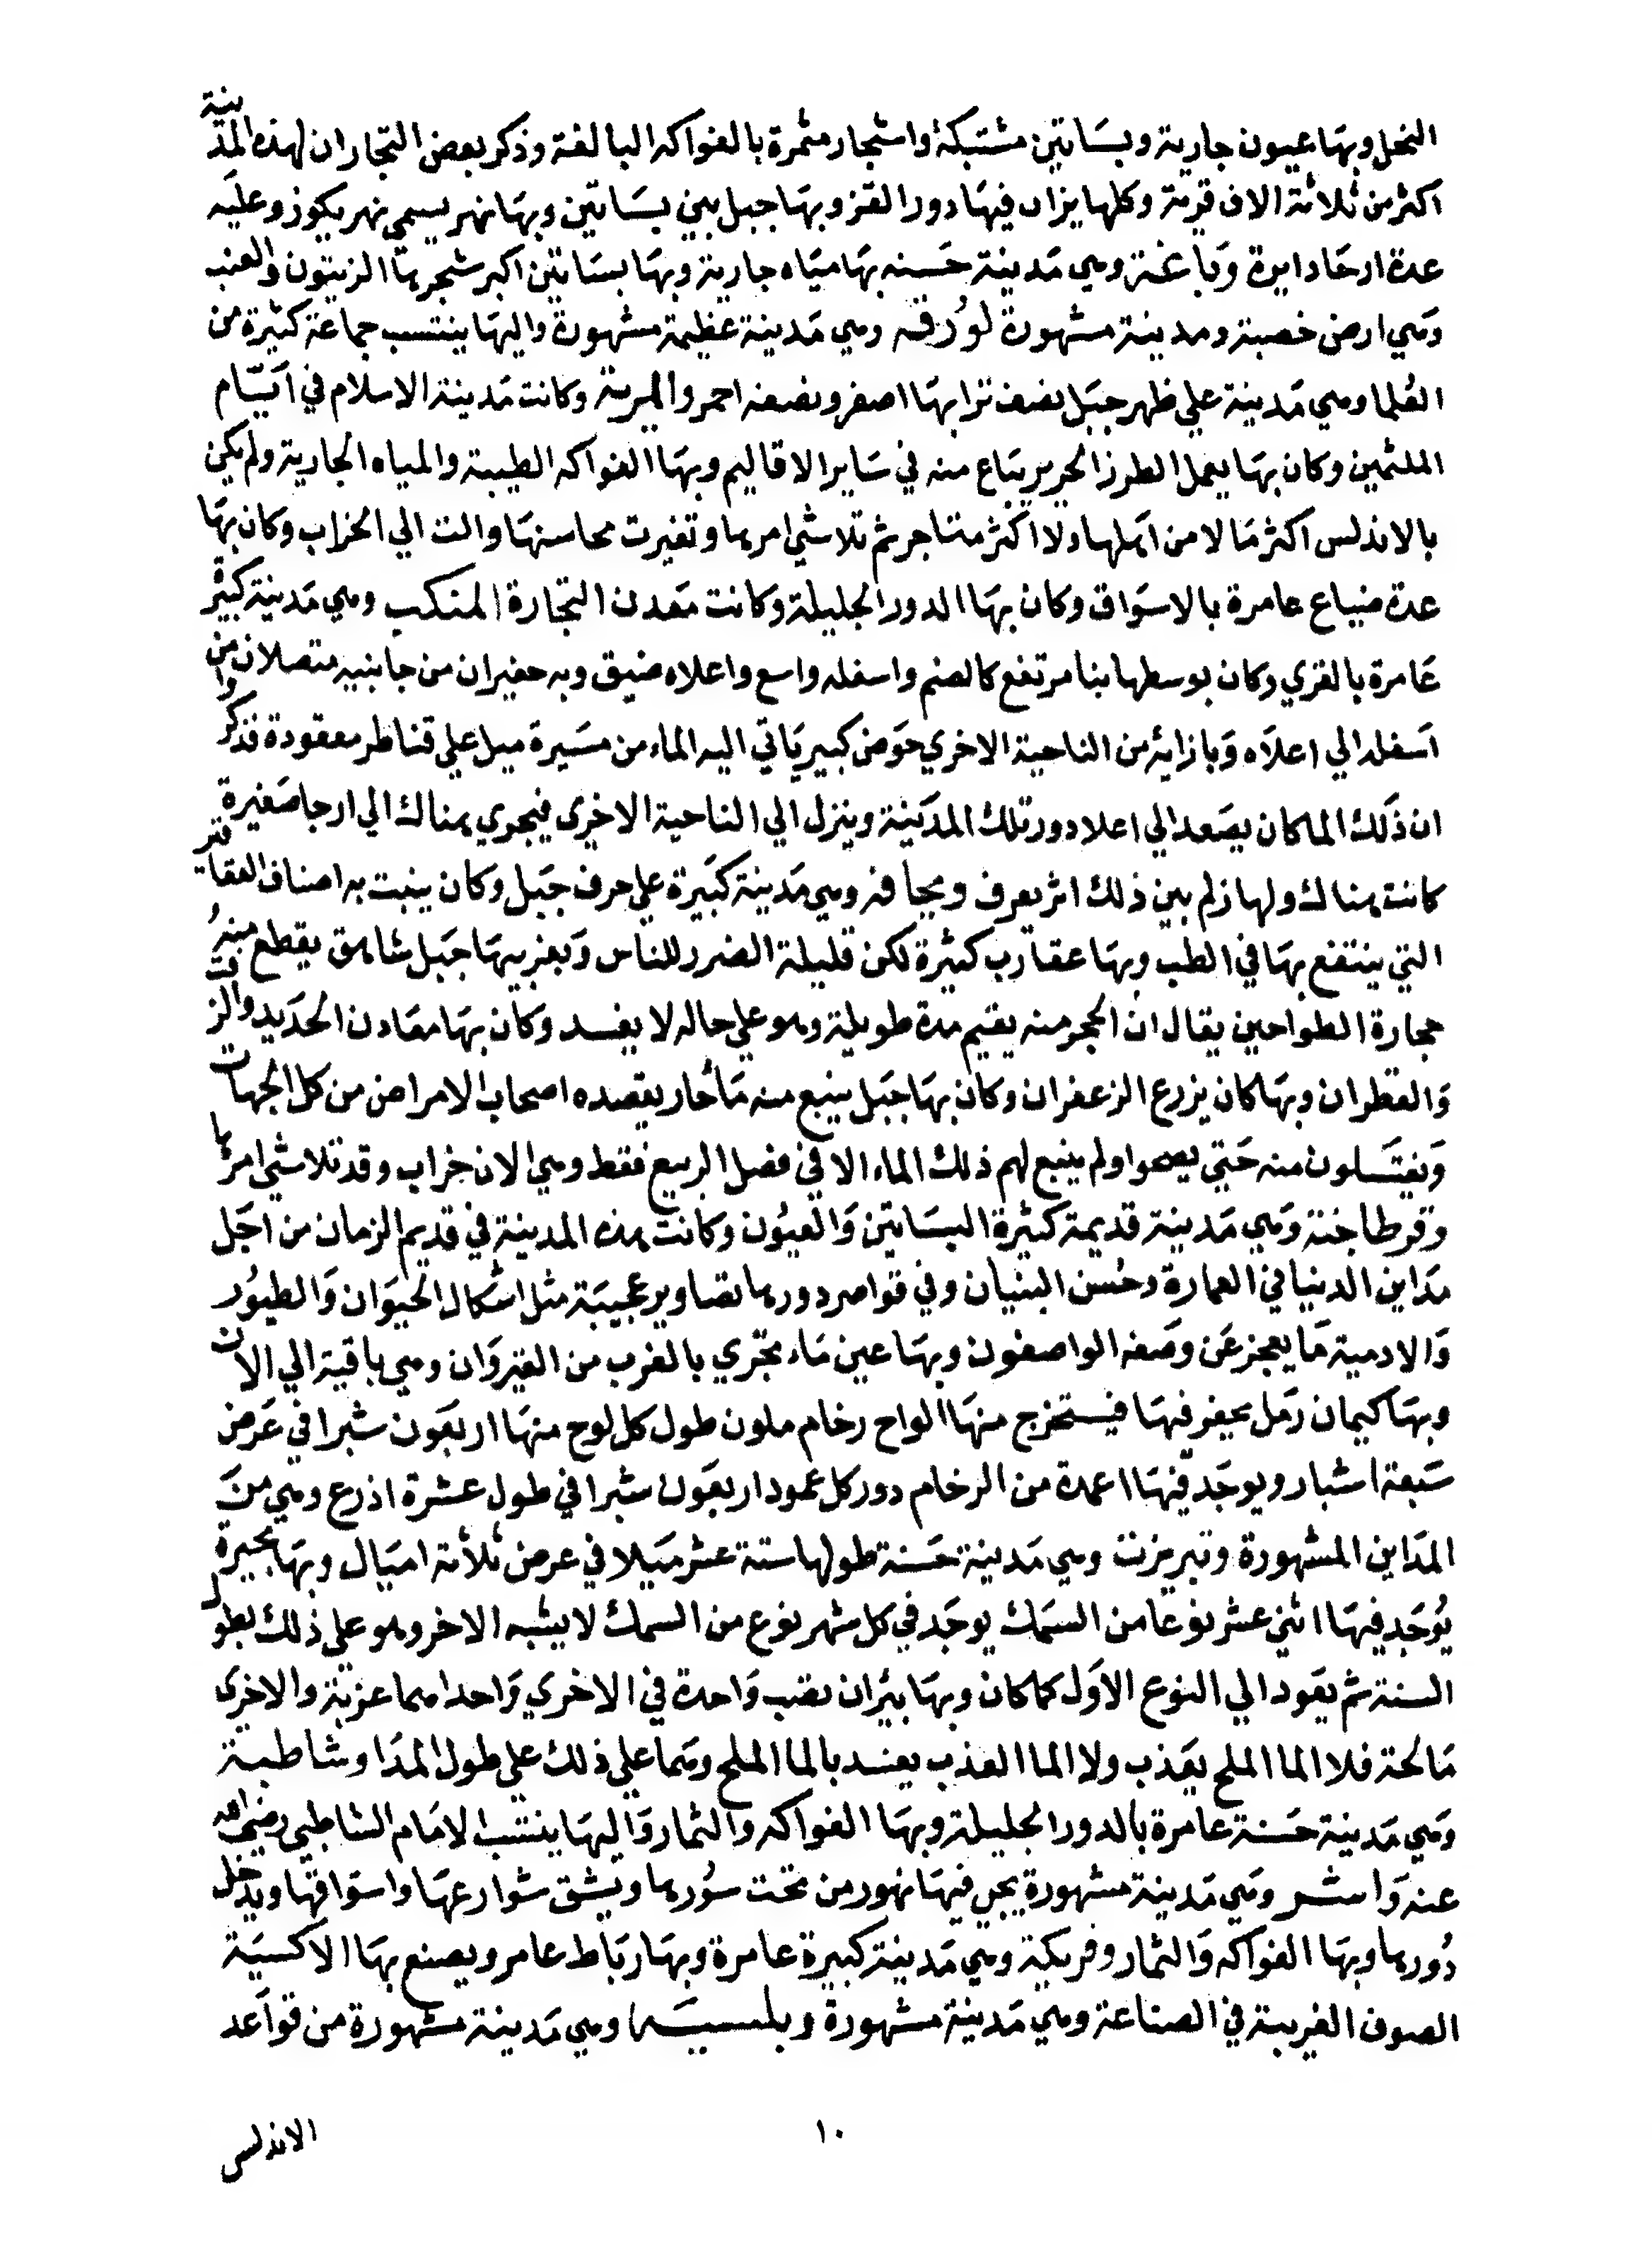 النخل وبها عيون جارية وبساتين مشتبكة واشجار مثمرة بالفواكه البالغة وذكر بعض التجار ان لهذه المدينة
اكثر من ثلاثة الاف قرية وكلها يزاد فيها دور القز وبها جبل بين بساتين وبها نهر يسمي نهر يكوز وعليه
عدة ارحا دايرة وباغة وهي مدينة حسنه بها مياه جارية وبها بساتين اكبر شجرها الزيتون والعنب
وهي ارض خصبة ومدينة مشهورة لورقه وهي مدينة عظيمة مشهورة واليها ينتسب جماعة كثيرة من
العلما وهي مدينة علي ظهر جبل نصف ترابها اصفر ونصفه احمر والمرية وكانت مدينة الاسلام في ايام
الملثمين وكان بها يعمل الطرز الحرير يتباع منه في ساير الاقاليم وبها الفواكه الطيبة والمياه الجارية ولم يكن
بالاندلس اكثر مالا من اهلها ولا اكثر متاجر ثم تلاشي امرها وتغيرت محاسنها والت الي الخراب وكان بها
عدة ضياع عامرة بالاسواق وكان بها الدور الجليلة وكانت معدن التجارة المنكب وهي مدينة كبيرة
عامرة بالقري وكان بوسطها بنا مرتفع كالصنم واسفله واسع واعلاه ضيق وبه حفيران من جانبيه متصلان من
اسفله الي اعلاه وبازائه من الناحية الاخري حوض كبير ياتي اليه الماء من مسيرة ميل علي قناطر معقودة فذكروا
ان ذلك الما كان يصعد الي اعلا دور تلك المدينة وينزل الي الناحية الاخري فيجري هناك الي ارحا صغيرة
كانت هناك ولها زلم بين ذلك اثر يعرف وبجافه وهي مدينة كبيرة علي حرف جبل وكان ينبت به اصناف العقاقير
التي ينتفع بها في الطب وبها عقارب كثيرة لكن قليلة الضرر للناس وبغربيها جبل شاهق يقطع منه
حجارة الطواحين يقال ان الحجر منه يقيم مدة طويلة وهو علي حاله لا يفسد وكان بها معادن الحديد والزفت
والقطران وبها كان يزرع الزعفران وكان بها جبل ينبع منه ما حار يقصده اصحاب الامراض من كل الجهات
ويغتسلون منه حتي يصحوا ولم ينبع لهم ذلك الماء الا في فصل الربيع فقط وهي الان خراب وقد تلاشي امرها
وقرطاجنة وهي مدينة قديمة كثيرة البساتين والعيون وكانت هذه المدينة في قديم الزمان من اجل
مداين الدنيا في العمارة وحسن البنيان وفي قواصر دورها تصاوير عجيبة مثل اشكال الحيوان والطيور
والادمية ما يعجز عن وصفه الواصفون وبها عين ماء تجري بالغرب من القيروان وهي باقية الي الان
وبها كيمان رمل يحفر فيها فيستخرج منها الواح رخام ملون طول كل لوح منها اربعون شبرا في عرض
سبعة اشبار ويوجد فيها اعمدة من الرخام دور كل عمود اربعون شبرا في طول عشرة اذرع وهي من
المداين المشهورة وتبريزت وهي مدينة حسنة طولها ستة عشر ميلا في عرض ثلاثة اميال وبها بحيرة
يوجد فيها اثني عشر نوعا من السمك يوجد في كل شهر نوع من السمك لا يشبه الاخر وهو علي ذلك بطول
السنة ثم يعود الي النوع الاول كما كان وبها بئران تصب واحدة في الاخري واحداهما عزبة والاخري
مالحة فلا الما الملح يعذب ولا الما العذب يفسد بالما الملح وهما علي ذلك علي طول المدا وشاطبة
وهي مدينة حسنة عامرة بالدور الجليلة وبها الفواكه والثمار واليها ينتسب الامام الشاطبي رضي الله
عنه واشـر وهي مدينة مشهورة يجي فيها نهور من تحت سورها ويشق شوارعها واسواقها ويدخل
دورها وبها الفواكه والثمار وفريكية وهي مدينة كبيرة عامرة وبها رباط عامر ويصنع بها الاكسية
الصوف الغريبة في الصناعة وهي مدينة مشهورة وبلنسية وهي مدينة مشهورة من قواعد
١٠
الاندلس